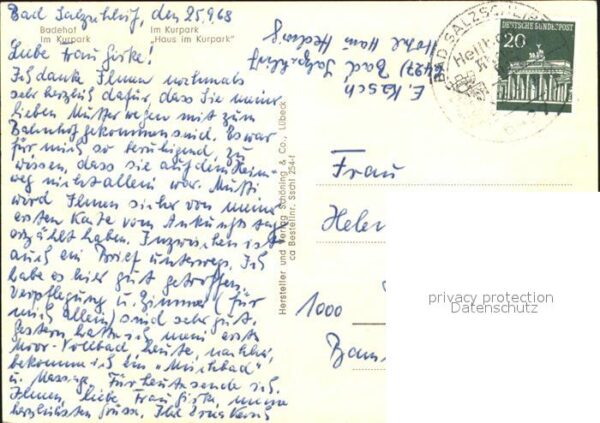 Bad Salzschlirf, den 25.9.68
Badehof
Im Kurpark
Im Kurpark
„Haus im Kurpark"
Liebe Frau Girke!
Ich danke Ihnen nochmals
sehr herzlich dafür, dass Sie meiner
lieben Mutter wegen mit zum
Bahnhof gekommen sind. Es war
für mich so beruhigend, zu
wissen, dass sie auf dem Heim-
weg nicht allein war. Mutti
wird Ihnen sicher von meiner
ersten Karte vom Ankunftstage
erzählt haben. Inzwischen ist
auch ein Brief unterwegs. Ich
habe es hier gut getroffen.
Verpflegung u. Zimmer (für
mich allein) sind sehr gut.
Gestern hatte ich mein erstes
Moor-Vollbad, heute, nachher,
bekomme ich ein
u. Massage. Für heute sende ich
Ihnen, liebe Frau Girke, meine
herzlichsten Grüsse. Ihre Erica
Hersteller und Verlag Schöning & Co., Lübeck
ca Bestellnr. Sschl 254-f
E. Karsch
6427) Bad Salzschlirf
Haus Hedwig
BAD SALZSCHLIRF
Heilb
DEUTSCHE BUNDESPOST
20
Frau
Helen
1000
privacy protection
Datenschutz